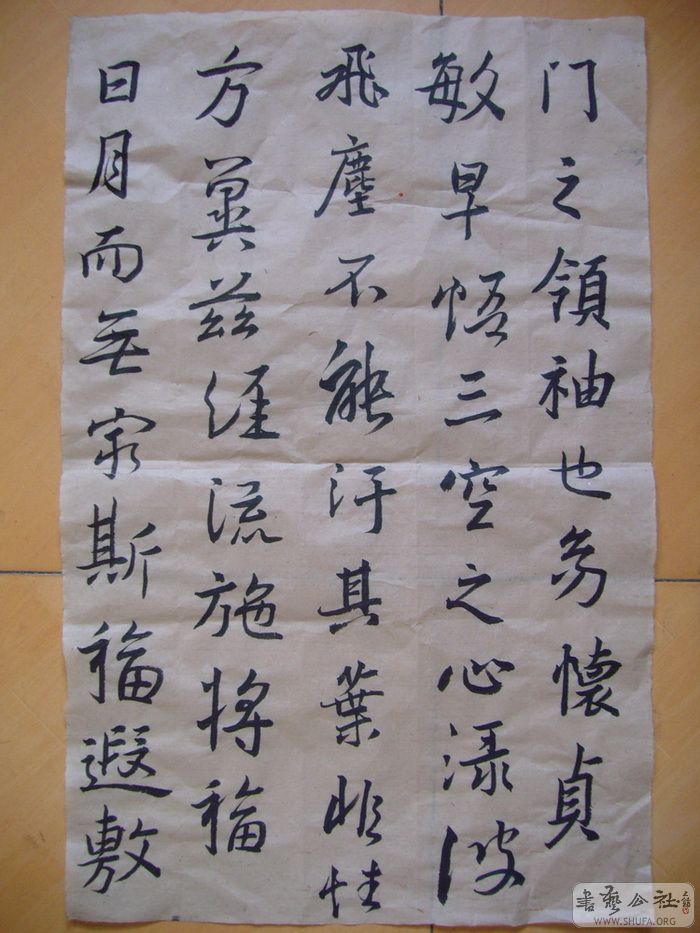 门之領袖也幼懷貞
敏早悟三空之心渌波
飛塵不能汙其葉非性
方冀兹經流施將福
日月而無窮斯福遐敷
書藝公社
WWW.SHUFA.ORG